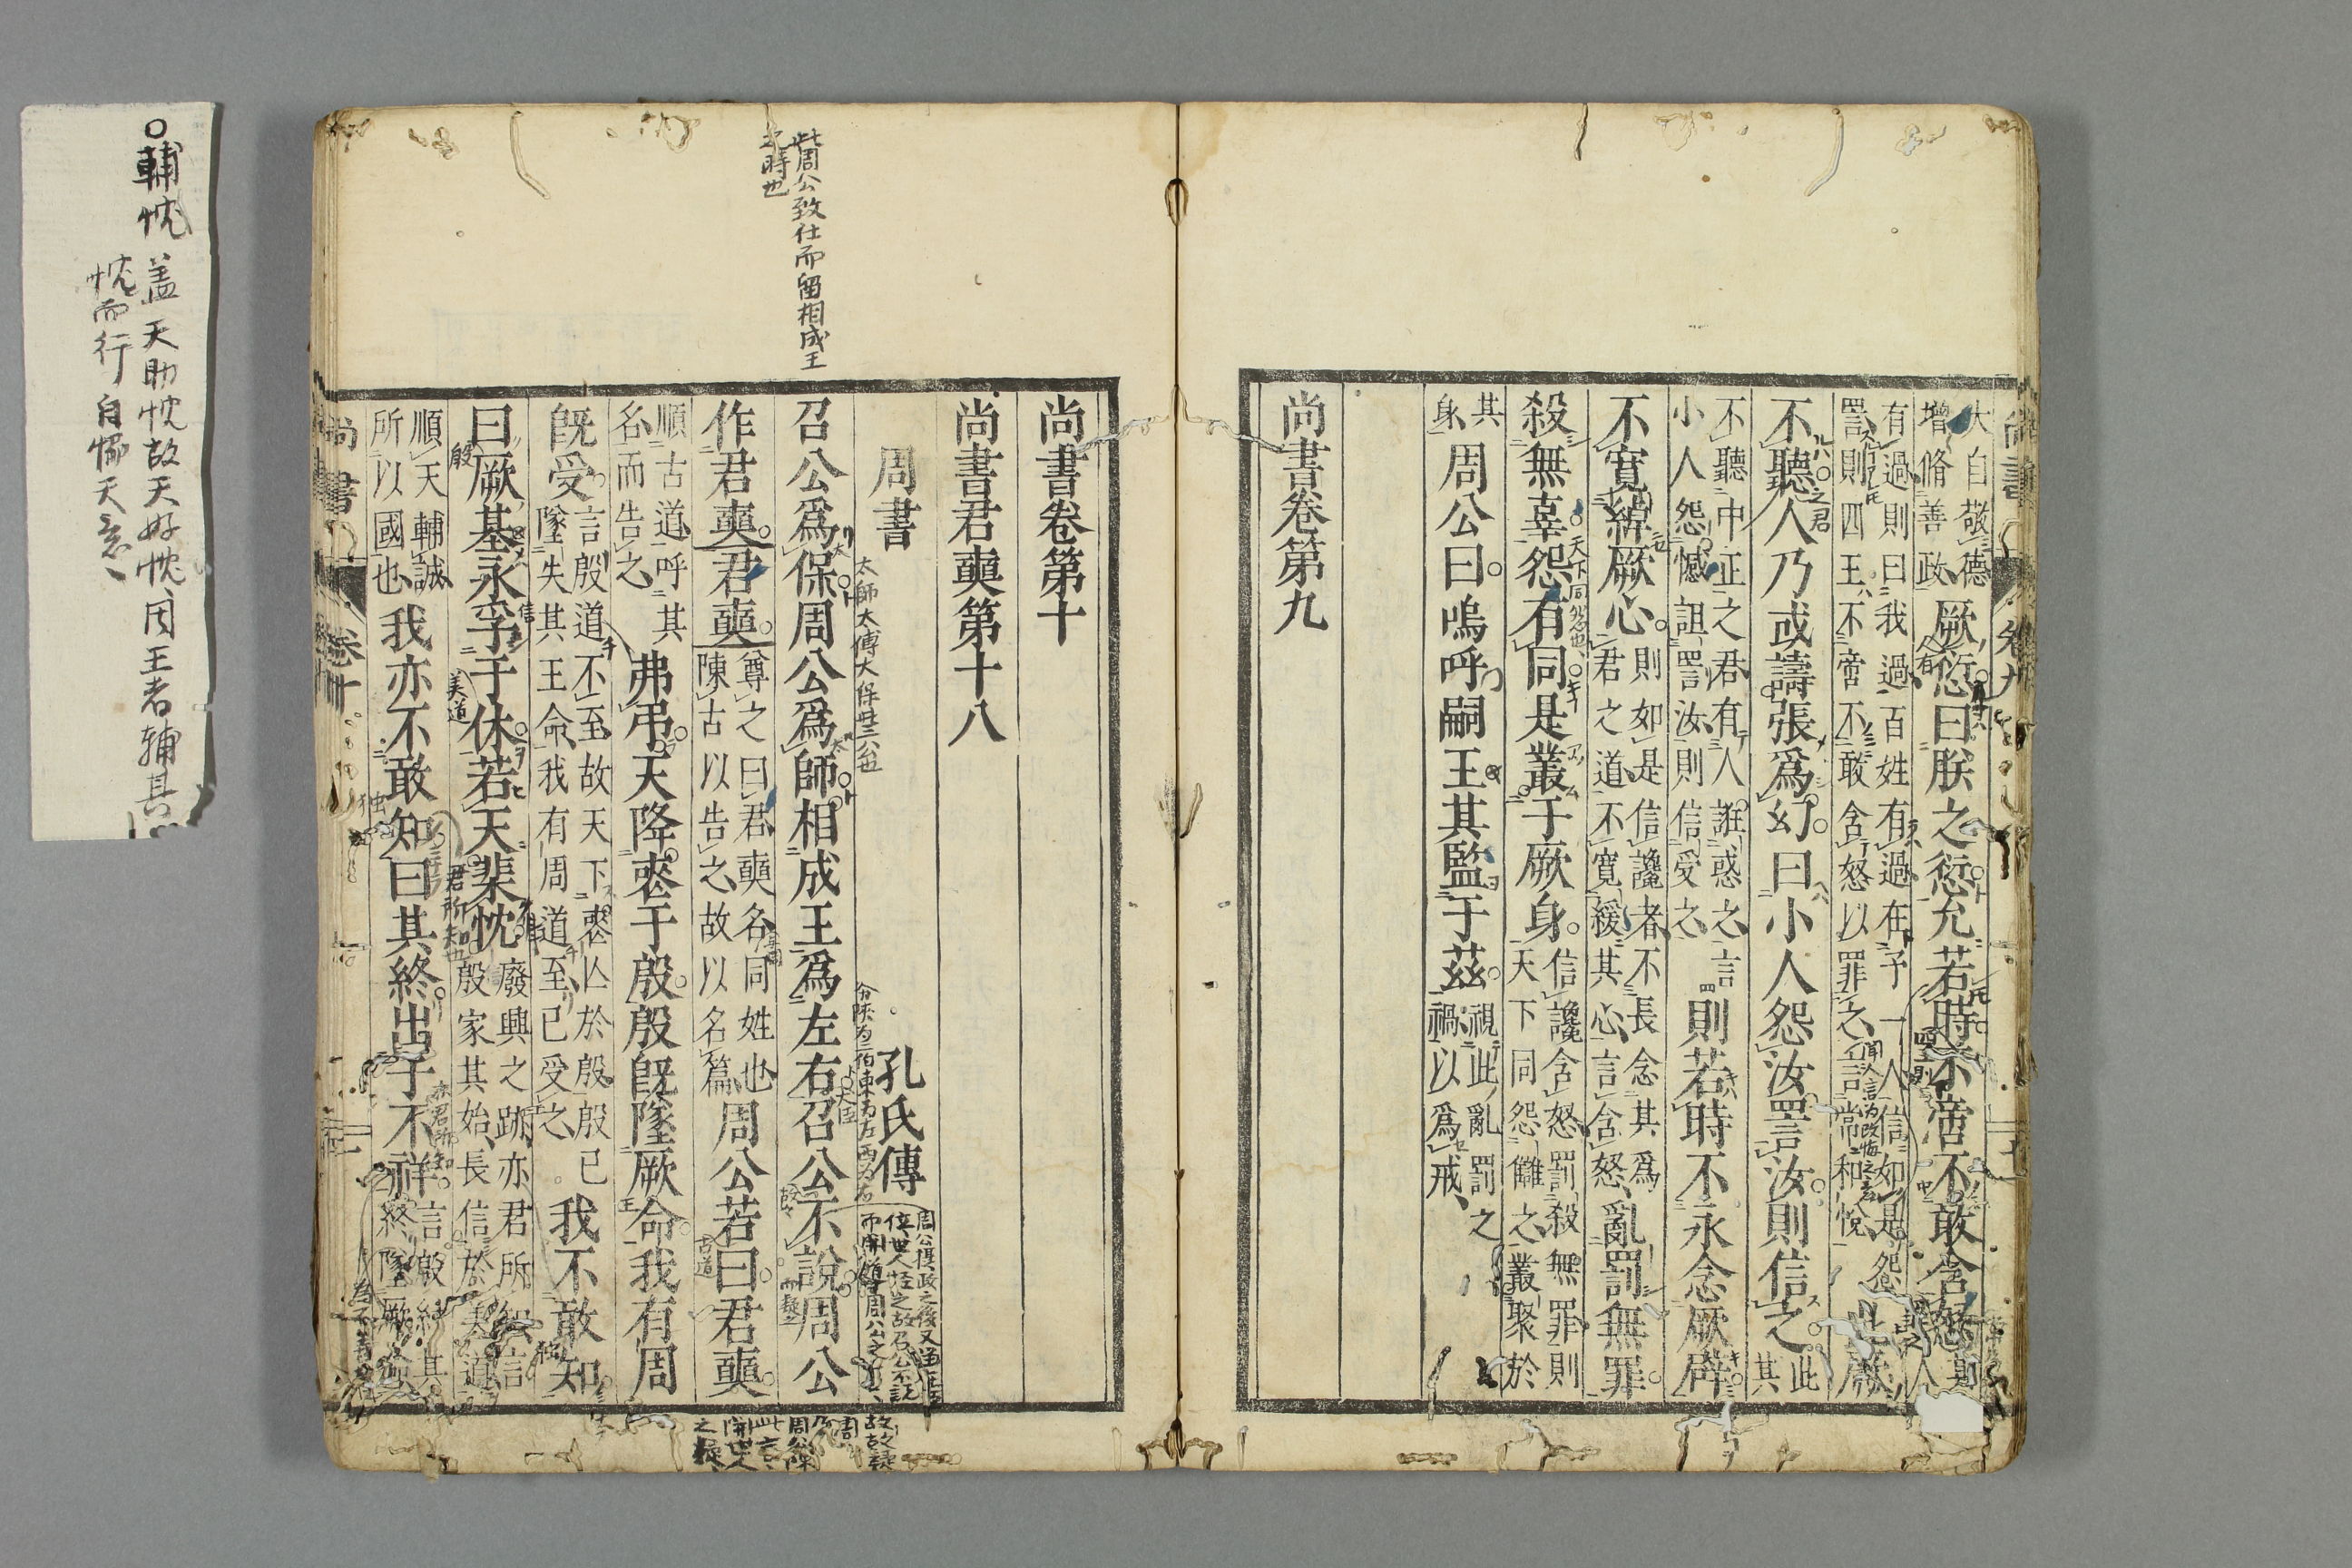 大自敬德
增脩善政
厥愆曰朕之愆允若時不啻不敢含怒
有過則曰我過百姓有過在予一人信如是怨
詈則四王不啻不敢含怒以罪之言常和悅
此厥
不聽人乃或譸張爲幻曰小人怨汝詈汝則信之
此
其
不聽中正之君有人誑惑之言
小人怨憾詛詈汝則信受之
則若時不永念厥辟
不寬綽厥心
則如是信讒者不長念其爲
君之道不寬緩其心言含怒
亂罰無罪
殺無辜怨有同是叢于厥身
信讒含怒罰殺無罪則
天下同怨讎之叢聚於
其
身
周公曰嗚呼嗣王其監于茲
視此亂罰之
禍以爲戒
尚書卷第九
尚書卷第十
尚書君奭第十八
周書
孔氏傳
召公爲保周公爲師相成王爲左右召公不說周公
作君奭君奭
尊之曰君奭名同姓也
陳古以告之故以名篇
周公若曰君奭
順古道呼其
名而告之
弗弔天降喪于殷殷既墜厥命我有周
既受
言殷道不至故天下喪亾於殷殷已
墜失其王命我有周道至已受之
我不敢知
曰厥基永孚于休若天棐忱
廢興之跡亦君所知言
殷家其始長信於美道
順天輔誠
所以國也
我亦不敢知曰其終出于不祥
言殷紂其
終墜厥命
尚書
卷十
此周公致仕而留相成王
之時也
太師大傅大保世三公也
分陝为二伯東为左西为右
○輔忱
盖天助忱故天好忱因王者輔其
忱而行自
天意